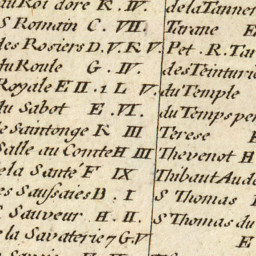 du Roi doré K. IV.
S Romain C. VII.
des Rosiers D. V. K V.
du Roule G. IV.
Royale E II. 2 L V.
du Sabot E. VI.
de Saintonge K III
Salle au Comte H III
de la Santé F IX
es Saussaies B. I
S. Sauveur H. II.
de la Savaterie 7 G. V
de la Tanner
Tarane E
Pet. R. Tar
des Teinturi
du Temple
du Temps per
Terese
Thevenot H
Thibaut Aude
S Thomas
S Thomas du
E